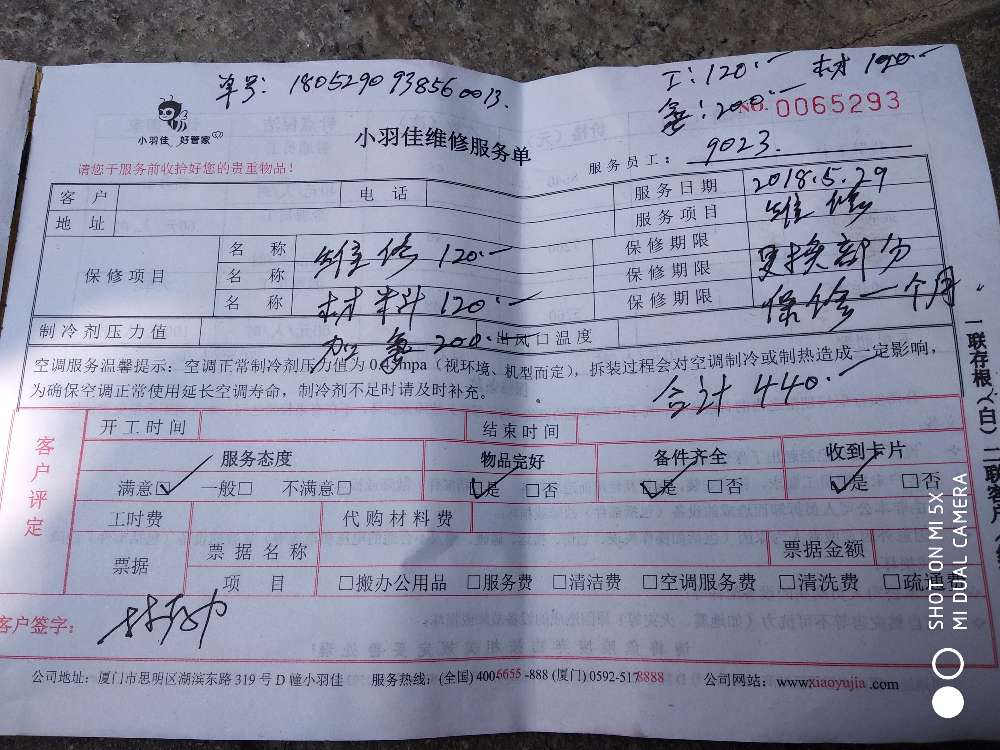 单号: 18052909385600013.
工:120.— 材120.—
氟:200.— NO. 0065293
小羽佳 好管家
小羽佳维修服务单
服务员工: 9023.
请您于服务前收拾好您的贵重物品!
客 户 电 话 服务日期 2018.5.29
地 址 服务项目 维修
保修项目 名 称 维修 120.— 保修期限
名 称 保修期限 更换部分
名 称 材料 120.— 保修期限 保修一个月
制冷剂压力值 加氟 200.— 出风口温度
空调服务温馨提示:空调正常制冷剂压力值为0.45mpa(视环境、机型而定),拆装过程会对空调制冷或制热造成一定影响,
为确保空调正常使用延长空调寿命,制冷剂不足时请及时补充。
合计 440.—
客户评定
开工时间 结束时间
服务态度 物品完好 备件齐全 收到卡片
满意☑ 一般□ 不满意□ ☑是 □否 ☑是 □否 ☑是 □否
工时费 代购材料费
票据 票据名称 票据金额
项 目 □搬办公用品 □服务费 □清洁费 □空调服务费 □清洗费 □疏通费
客户签字:
公司地址:厦门市思明区湖滨东路319号D幢小羽佳 服务热线:(全国)400-6655-888(厦门)0592-5178888 公司网站:www.xiaoyujia.com
一联存根(白)二联客户
SHOT ON MI 5X
MI DUAL CAMERA